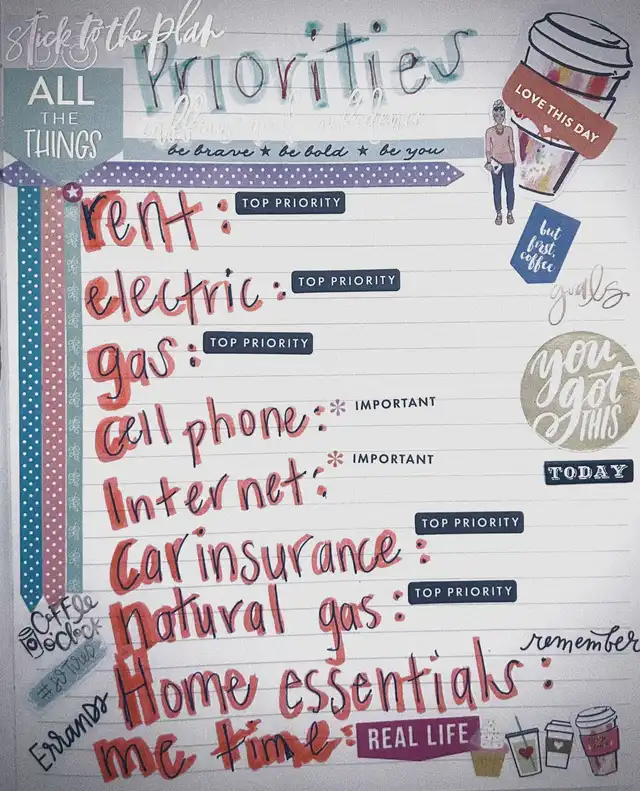 stick to the plan
Priorities
DO
ALL
THE
THINGS
LOVE THIS DAY
be brave ★ be bold ★ be you
rent: TOP PRIORITY
but
first,
coffee
electric: TOP PRIORITY
goals
gas: TOP PRIORITY
you
got
THIS
cell phone: * IMPORTANT
Internet: * IMPORTANT
TODAY
car insurance: TOP PRIORITY
natural gas: TOP PRIORITY
Coffee
O'Clock
remember
Home essentials:
Errands
me time: REAL LIFE